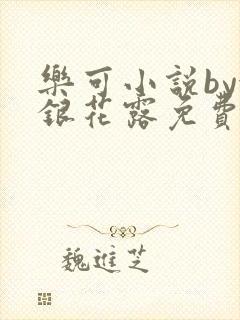 樂可小說by
銀花露免費
魏進芝